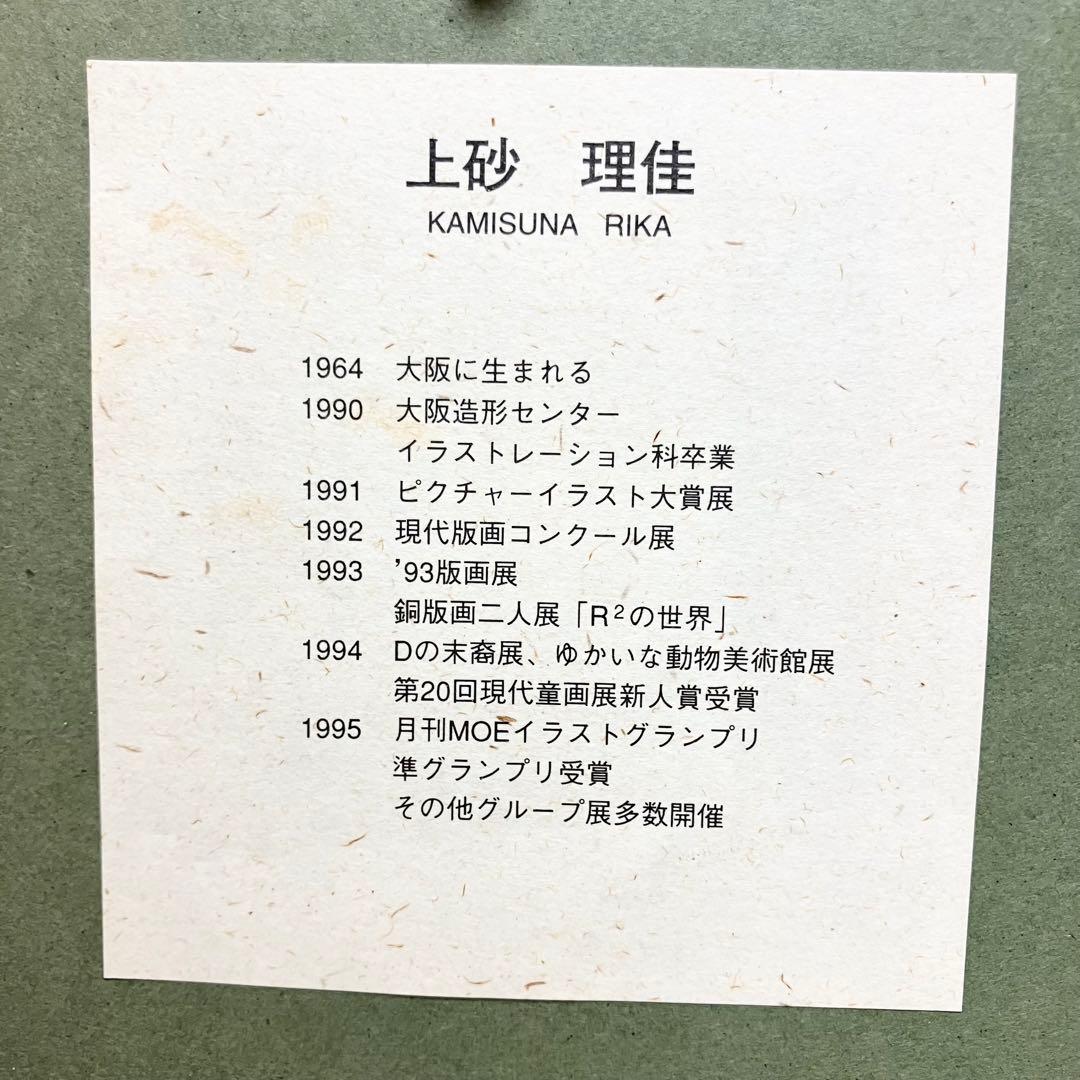 上砂　理佳
KAMISUNA RIKA
1964 大阪に生まれる
1990 大阪造形センター
イラストレーション科卒業
1991 ピクチャーイラスト大賞展
1992 現代版画コンクール展
1993 ’93版画展
銅版画二人展「R²の世界」
1994 Dの末裔展、ゆかいな動物美術館展
第20回現代童画展新人賞受賞
1995 月刊MOEイラストグランプリ
準グランプリ受賞
その他グループ展多数開催